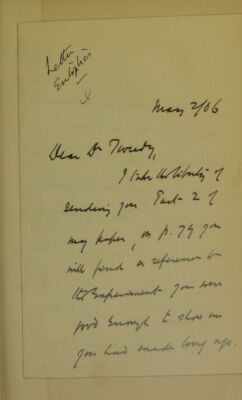 Letter
Entoptics
May 2/06
Dear Dr Tweedy,
I take the liberty of
sending you Part 2 of
my paper, on p. 79 you
will find a reference to
the Experiment you were
good enough to show me
you had made long ago.